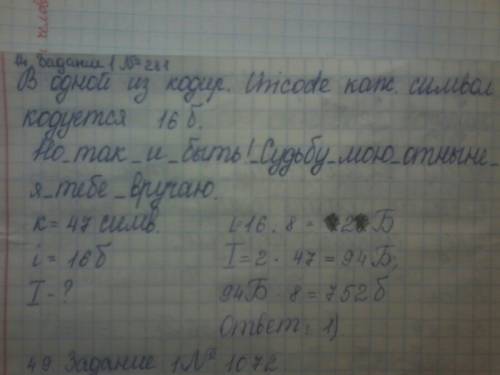 Задание 1 № 281
В одной из кодир. Unicode каж. символ
кодуется 16 б.
Но_так_и_быть!_Судьбу_мою_отныне_
я_тебе_вручаю.
к = 47 симв. i=16 : 8 = 2 Б
i = 16 б I = 2 · 47 = 94 Б;
I - ? 94 Б · 8 = 752 б
Ответ: 1)
49. Задание 1 № 1072